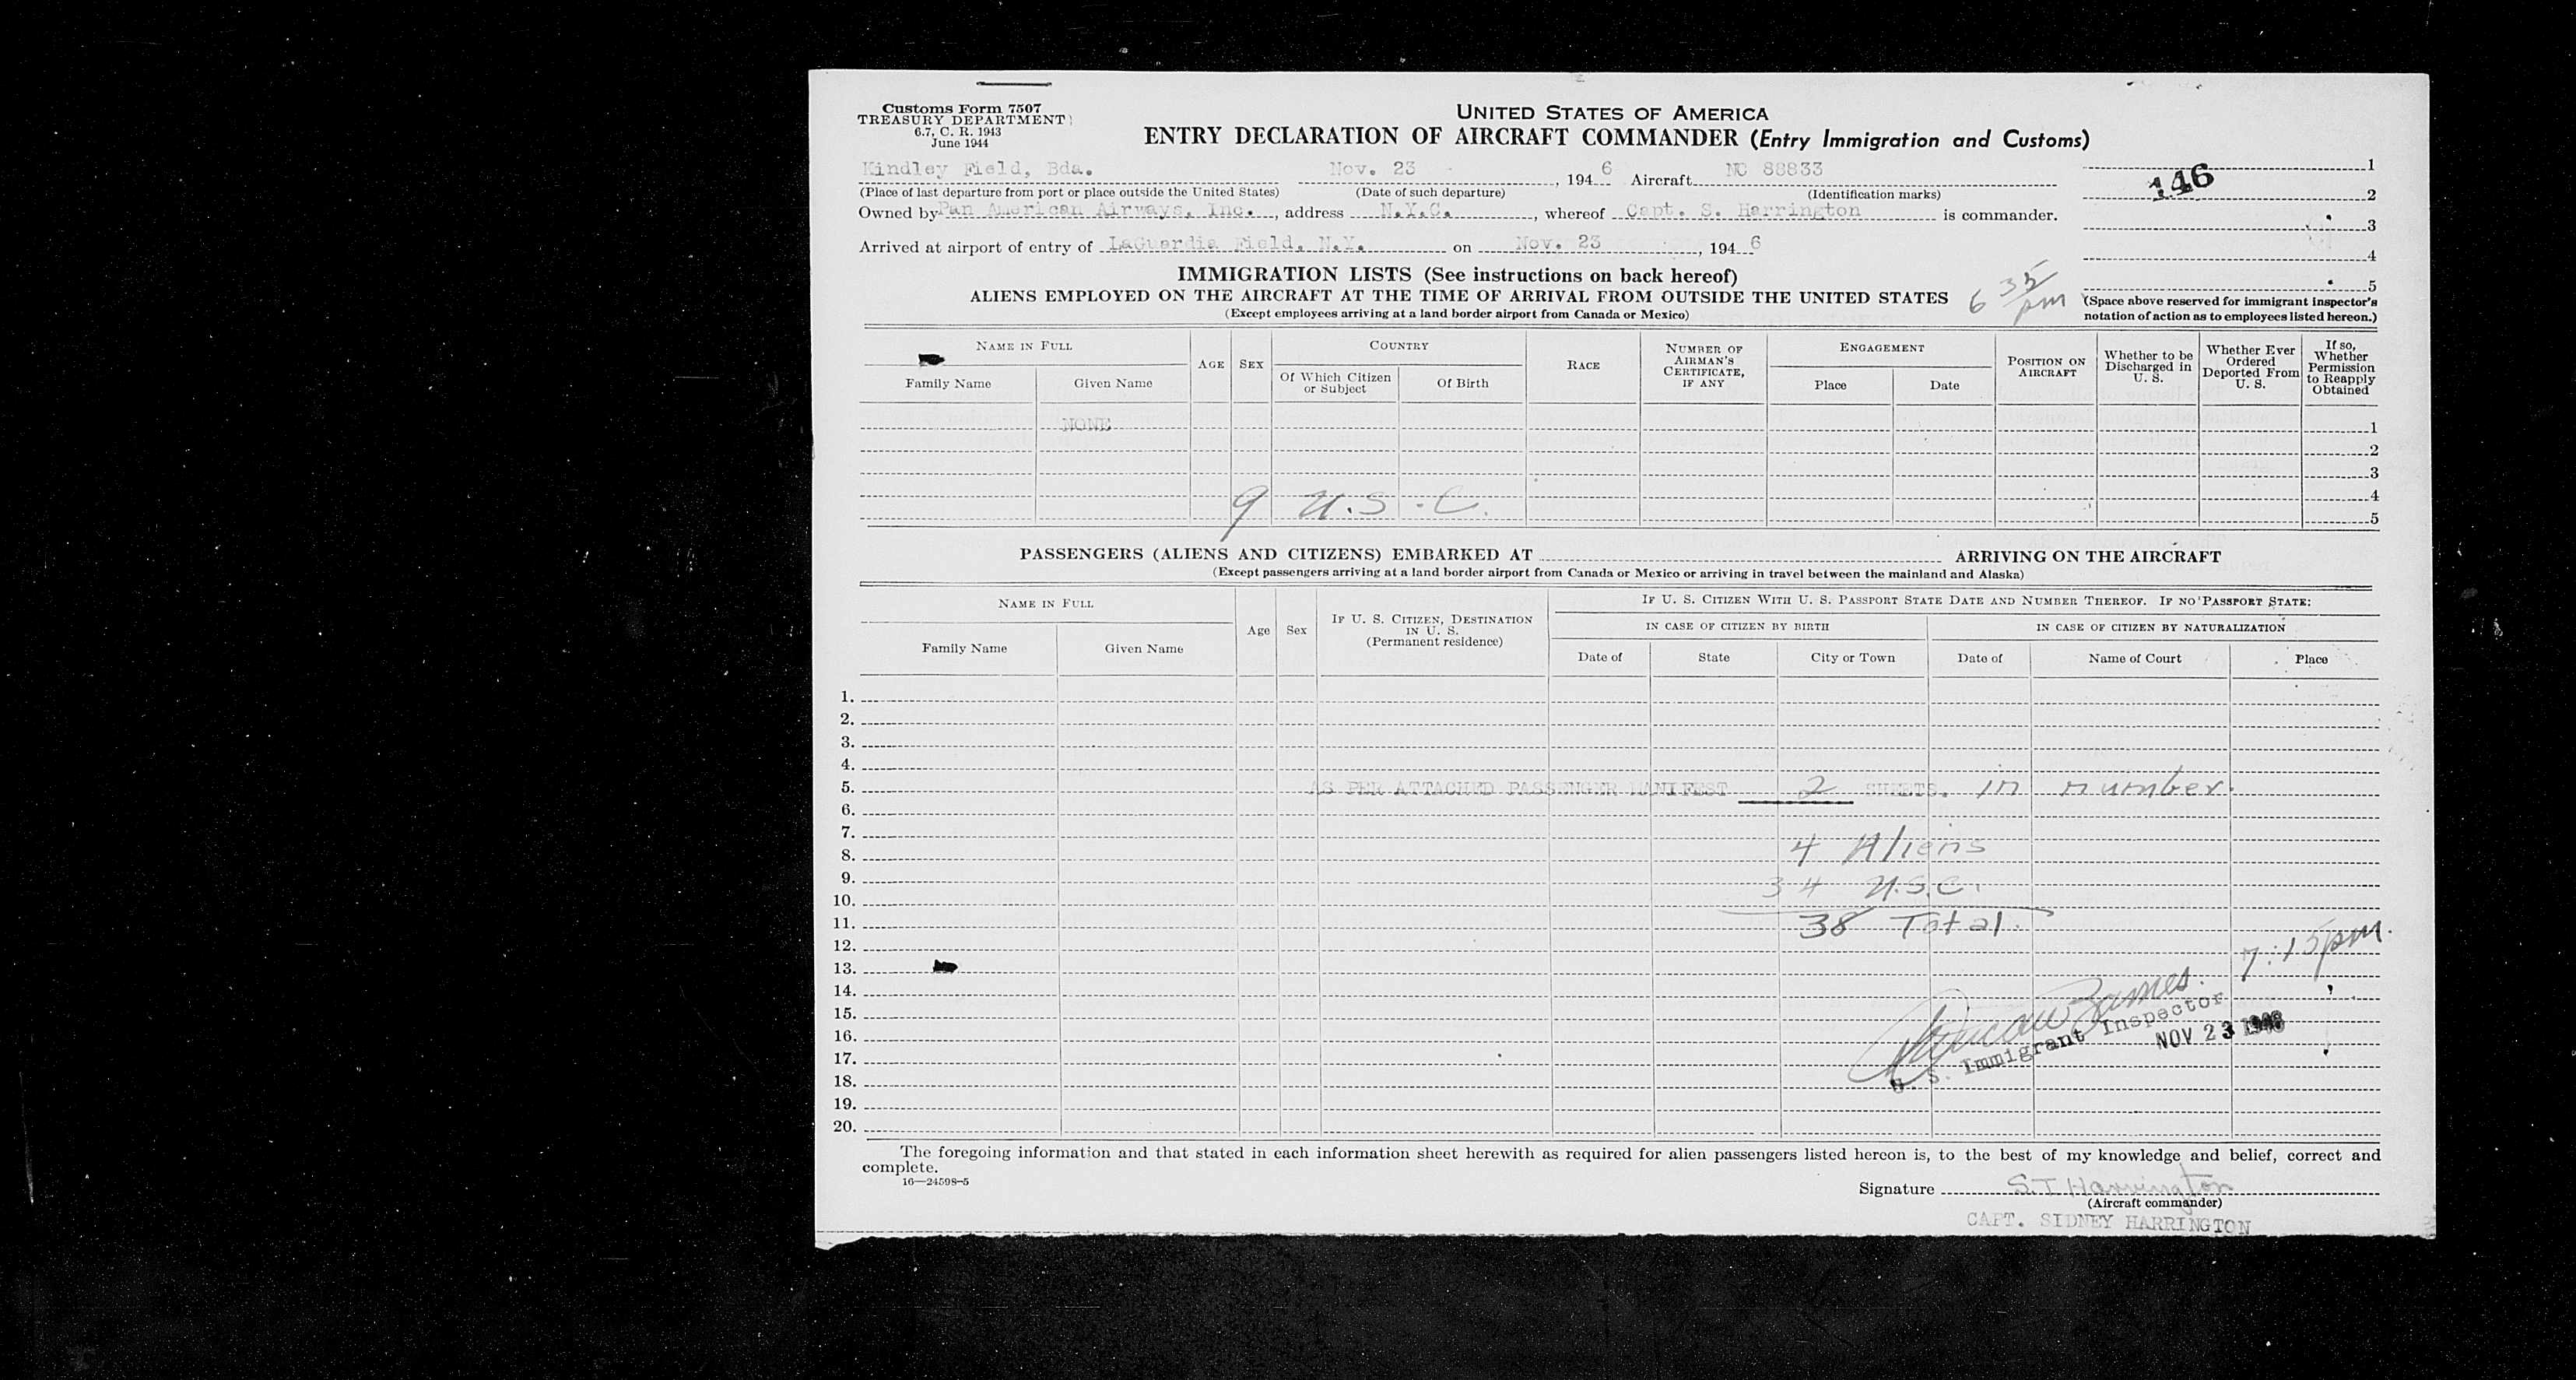 Customs Form 7507
TREASURY DEPARTMENT
6.7, C. R. 1943
June 1944
UNITED STATES OF AMERICA
ENTRY DECLARATION OF AIRCRAFT COMMANDER (Entry Immigration and Customs)
Kindley Field, Bda. Nov. 23, 194 6 Aircraft NC 88833
(Place of last departure from port or place outside the United States) (Date of such departure) (Identification marks)
Owned by Pan American Airways, Inc., address N.Y.C., whereof Capt. S. Harrington is commander.
Arrived at airport of entry of LaGuardia Field, N.Y. on Nov. 23, 194 6
1
146
2
3
4
5
(Space above reserved for immigrant inspector's
notation of action as to employees listed hereon.)
IMMIGRATION LISTS (See instructions on back hereof)
ALIENS EMPLOYED ON THE AIRCRAFT AT THE TIME OF ARRIVAL FROM OUTSIDE THE UNITED STATES
6 35 pm
(Except employees arriving at a land border airport from Canada or Mexico)
NAME IN FULL
Family Name Given Name
AGE SEX
COUNTRY
Of Which Citizen or Subject Of Birth
RACE
NUMBER OF AIRMAN'S CERTIFICATE, IF ANY
ENGAGEMENT
Place Date
POSITION ON AIRCRAFT
Whether to be Discharged in U. S.
Whether Ever Ordered Deported From U. S.
If so, Whether Permission to Reapply Obtained
NONE 1
2
3
4
9 U.S.C. 5
PASSENGERS (ALIENS AND CITIZENS) EMBARKED AT ARRIVING ON THE AIRCRAFT
(Except passengers arriving at a land border airport from Canada or Mexico or arriving in travel between the mainland and Alaska)
NAME IN FULL
Family Name Given Name
Age Sex
IF U. S. CITIZEN, DESTINATION IN U. S.
(Permanent residence)
IF U. S. CITIZEN WITH U. S. PASSPORT STATE DATE AND NUMBER THEREOF. IF NO PASSPORT STATE:
IN CASE OF CITIZEN BY BIRTH IN CASE OF CITIZEN BY NATURALIZATION
Date of State City or Town Date of Name of Court Place
1.
2.
3.
4.
5. AS PER ATTACHED PASSENGER MANIFEST 2 SHEETS. in number.
6.
7.
8. 4 Aliens
9.
10. 34 U.S.C.
11. 38 Total.
12. 7:15pm.
13.
14.
15.
16.
17.
18.
19.
20.
U. S. Immigrant Inspector
NOV 23 1946
The foregoing information and that stated in each information sheet herewith as required for alien passengers listed hereon is, to the best of my knowledge and belief, correct and
complete.
16—24598-5
Signature S.T Harrington
(Aircraft commander)
CAPT. SIDNEY HARRINGTON